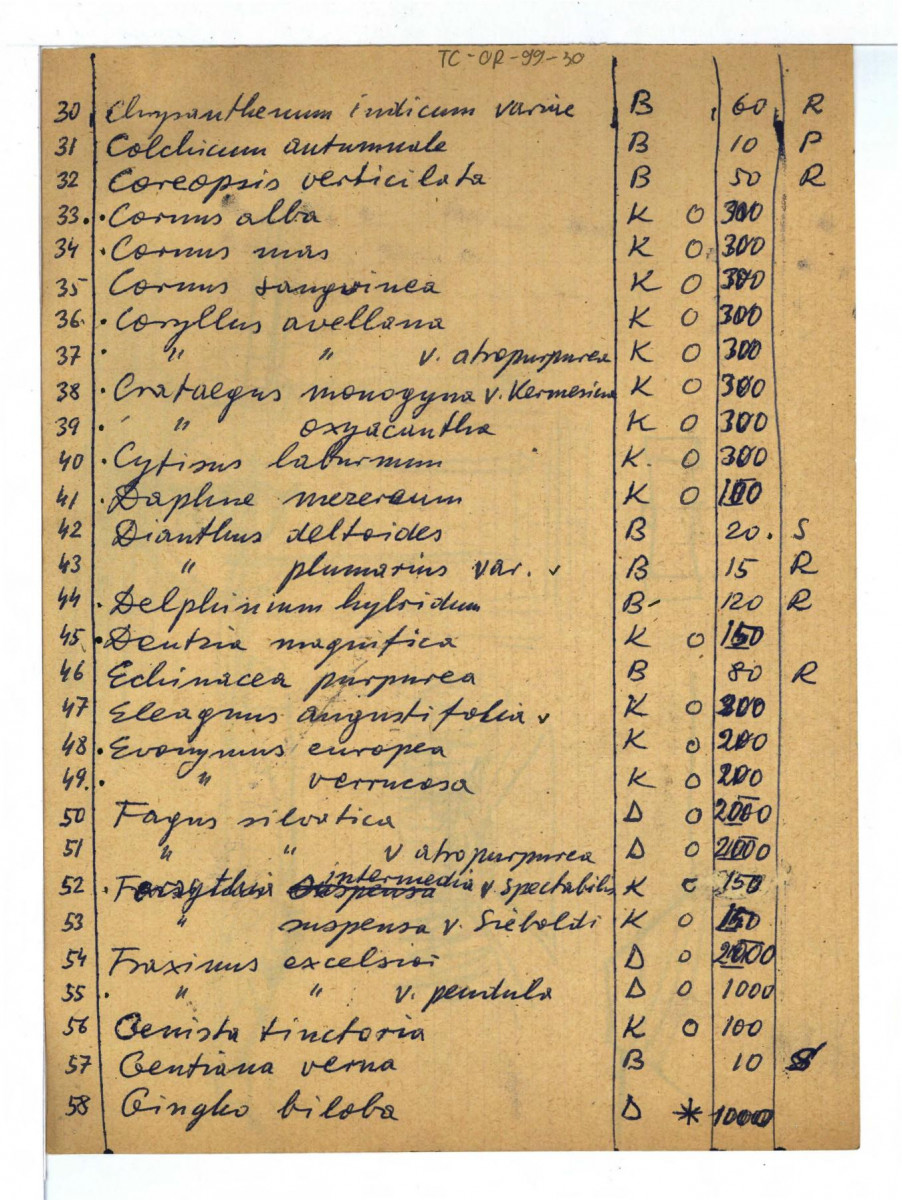 TC-OR-99-30
30 Chrysanthemum indicum variae B 60 R
31 Colchicum autumnale B 10 P
32 Coreopsis verticilata B 50 R
33. . Cornus alba K O 300
34 . Cornus mas K O 300
35 Cornus sanguinea K O 300
36. . Coryllus avellana K O 300
37 . " " v. atropurpurea K O 300
38 . Crataegus monogyna v. Kermesina K O 300
39 . " oxyacantha K O 300
40 . Cytisus laburnum K. O 300
41 . Daphne mezereum K O 100
42 Dianthus deltoides B 20. S
43 " plumarius var. v B 15 R
44 . Delphinium hybridum B- 120 R
45 . Deutzia magnifica K O 150
46 Echinacea purpurea B 80 R
47 Eleagnus angustifolia v K O 300
48 . Evonymus europea K O 200
49. . " verrucosa K O 200
50 Fagus silvatica D O 2000
51 " " v atropurpurea D O 2000
52 . Forzythia intermedia v. Spectabilis K O 150
53 " suspensa v. Sieboldi K O 150
54 Fraxinus excelsior D O 2000
55 . " " v. pendula D O 1000
56 Genista tinctoria K O 100
57 Gentiana verna B 10 S
58 Gingko biloba D * 1000